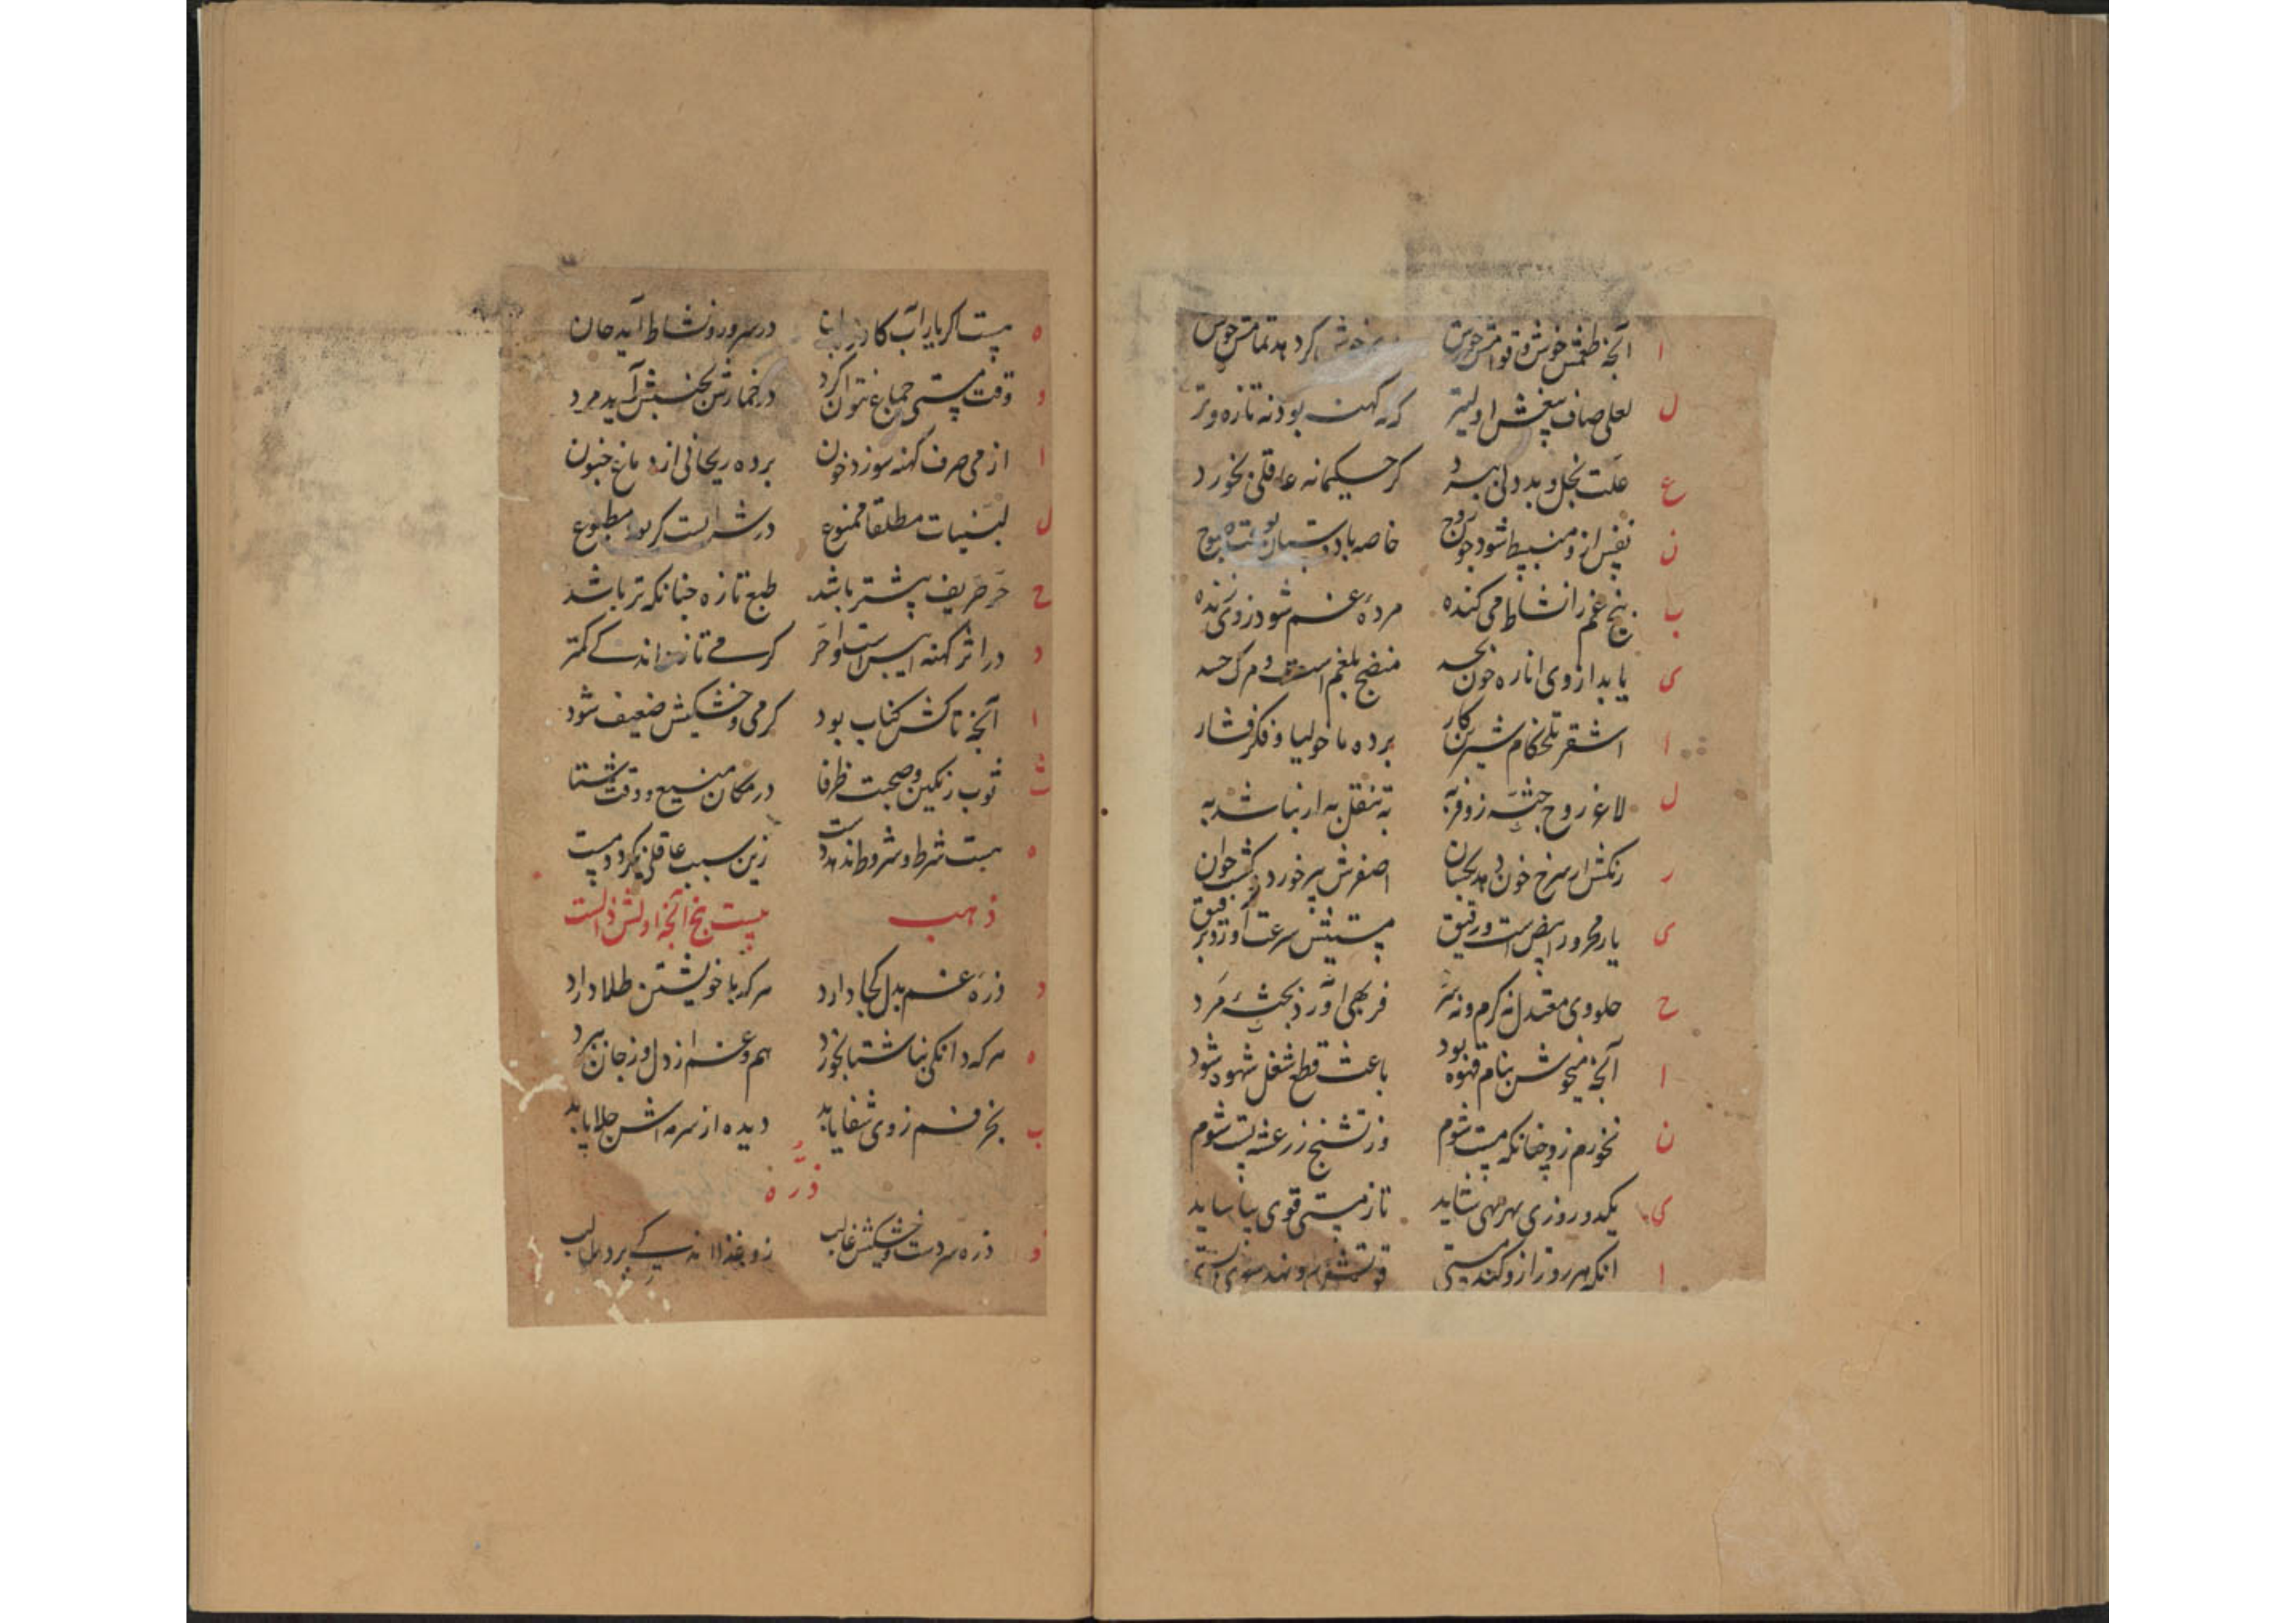 ا آنچه طعمش خوش و قوامش خوش خوش کرد هد تمامش خوش
ل لعلی صاف بیغش اولیتر که کهن بود نه تازه و تر
ع علت بخل و بددلی ببرد گر حکیمانه عاقلی بخورد
ن نفس ازو منبسط شود چون روح خاصه با دوستان
ب بیخ غم را نشاط می کنده مردهٔ غم شود ز وی زنده
ی یابد از وی اناره خون جسد منضج بلغم است و مرگ حسد
ا اشقر تلخکام شیرین کار برده ماخولیا و فکر فشار
ل لاغر و روح جثه زو فربه به تنقل به ار نباشد به
ر رنگش ار سرخ خون دهد بجنان اصفرش پیر خورد گشت جوان
ی یار محرور ابیض است و رقیق مستیش سرعت آورد برفیق
ح حلو وی معتدل نه گرم و نه سرد فربهی آورد بجثهٔ مرد
ا آنچه میخوش بنام قهوه بود باعث قطع شغل شهوه شود
ن نخورم زو چنانکه مست شوم وز تشنج ز رعشه پست شوم
ی یکدو روزی بهر مهی شاید تا ز مستی قوی بیاساید
ا انکه هر روز ازو کند مستی قوتش رو نهد سوی پستی
ه مست اگر یابد آب کاور در سرور و نشاط آید جان
و وقت مستی جماع نتوان کرد در خمارش بجنبش آید مرد
ا از می صرف کهنه سوزد خون برده ریحانی از دماغ جنون
ل لبنیات مطلقا ممنوع در شرابست گر بود مطبوع
ح حر حریف بیشتر باشد طبع تازه چنانکه تر باشد
د در اثر کهنه ایبس است و احر گرمی تازه اندکی کمتر
ا آنچه تاکش کناب بود گرمی و خشکیش ضعیف شود
ث ثوب رنگین و صحبت ظرفا در مکان منیع و وقت شتا
ه هست شرط و شروط اندهدست زین سبب عاقلی نگردد مست
ذهب بیست پنج آنچه اولش ذالست
د ذره غم بدل کجا دارد هر که با خویشتن طلا دارد
ه هر که دانگی بناشتا بخورد هم و غم را ز دل و ز جان ببرد
ب بخر فم ز وی شفا یابد دیده از سرمه اش جلا یابد
ذره
ذ ذره سردست و خشکیش غالب زو غذا اندکی برد طالب